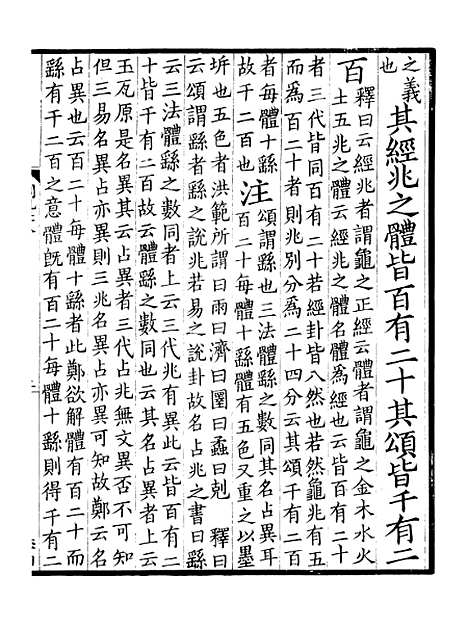 之義也其經兆之體皆百有二十其頌皆千有二
百釋曰云經兆者謂龜之正經云體者謂龜之金木水火
土五兆之體云經兆之體名體爲經也云皆百有二十
者三代皆同百有二十若經卦皆八然也若然龜兆有五
而爲百二十者則兆別分爲二十四分云其頌千有二百
者每體十繇
故千二百也
注頌謂繇也三法體繇之數同其名占異耳
百二十每體十繇體有五色又重之以墨
坼也五色者洪範所謂曰雨曰濟曰圛曰蟊曰剋 釋曰
云頌謂繇者繇之說兆若易之說卦故名占兆之書曰繇
云三法體繇之數同者上云三代兆有異此云皆百有二
十皆千有二百故云體繇之數同也云其名占異者上云
玉瓦原是名異其云占異者三代占兆無文異否不可知
但三易名異占亦異則三兆名異占亦異可知故鄭云名
占異也云百二十每體十繇者此鄭欲解體有百二十而
繇有千二百之意體旣有百二十每體十繇則得千有二